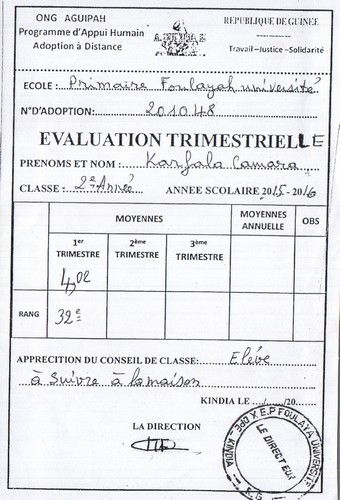 ONG AGUIPAH
Programme d'Appui Humain
Adoption à Distance
REPUBLIQUE DE GUINEE
Travail—Justice—Solidarité
ECOLE : Primaire Foulayah université
N°D'ADOPTION: 201048
EVALUATION TRIMESTRIELLE
PRENOMS ET NOM : Karfala Camara
CLASSE : 2e Année ANNEE SCOLAIRE 2015-2016
MOYENNES
MOYENNES ANNUELLE
OBS
1er TRIMESTRE
2ème TRIMESTRE
3ème TRIMESTRE
4,02
RANG 32e
APPRECITION DU CONSEIL DE CLASSE: Elève
à suivre à la maison
KINDIA LE / /20
LA DIRECTION
DPE X E.P FOULAYA UNIVERSITE
LE DIRECTEUR
KINDIA